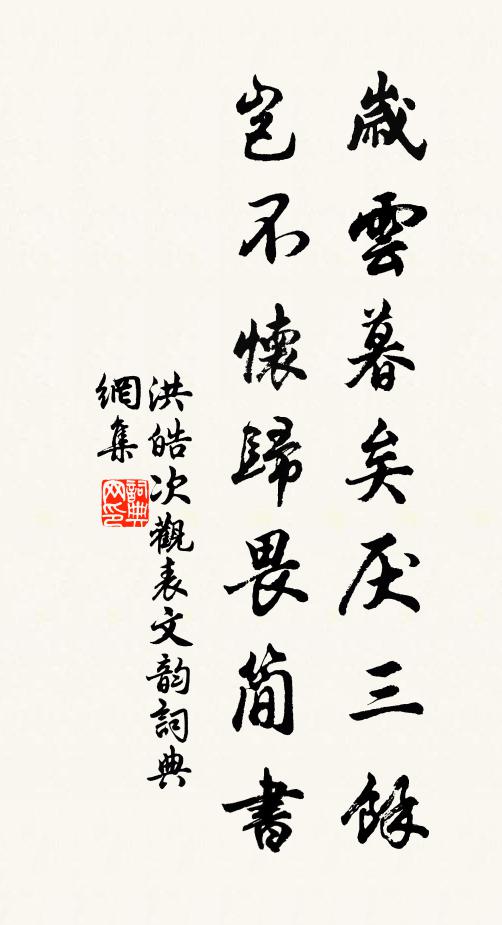 歲雲暮矣厌三餘
豈不懷歸畏簡書
洪皓次觀表文韵詞典
網集
詞典网印